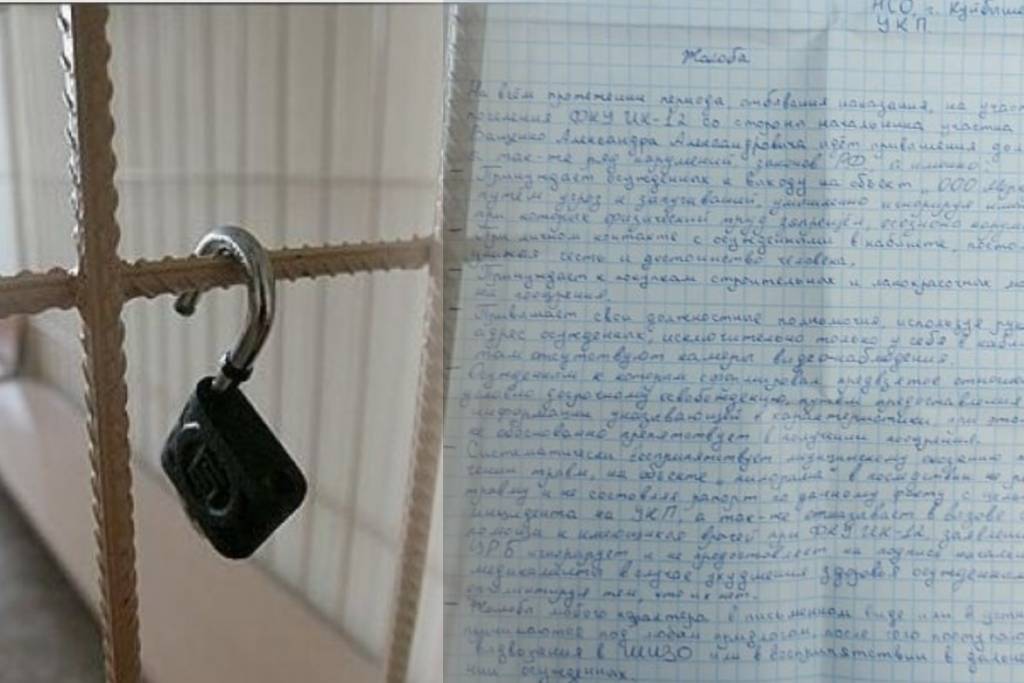 НСО, г. Куйбыше
УКП
Жалоба
На всём протяжении периода отбывания наказания, на участ
поселения ФКУ ИК-12 со стороны начальника участка
Ващенко Александра Александровича идёт привышения дол
а так-же ряд нарушений законов РФ, а именно:
- Принуждает осужденных к выходу на объект „ООО Мра
путём угроз и запугиваний, умышленно игнорируя
при которых физический труд запрещён, осознано наруш
- При личном контакте с осужденными в кабинете, посто
унижая честь и достоинство человека.
- Принуждает к покупкам строительных и лакокрасочных ма
на поощрения.
- Привышает свои должностные полномочия, используя
адрес осужденных, исключительно только у себя в кабин
там отсутствуют камеры видео-наблюдения.
Осужденным к которым сформировал предвзятое отношен
условно досрочному освобождению, путём предоставления
информации указывающей в характеристики при этом
не обоснованно препятствует в получении поощрения.
- Систематически воспрепятствует медицинскому оказанию
чении травм, на объекте „ в последствии не
травму и не составляя рапорт по данному факту с
инцидента на УКП, а так-же отказывает в вызове
помощи к имеющимся врачей при ФКУ ИК-12, заявлени
ЦРБ игнорирует и не предоставляет на подпись начальн
медикаменты в случае ухудшения здоровья осужденным
аргументируя тем, что их нет.
- Жалоба любого характера в письменном виде или в устн
под любым предлогом, после чего поступаю
выдворения в ШИЗО или в воспрепятствии в
нии осужденных.